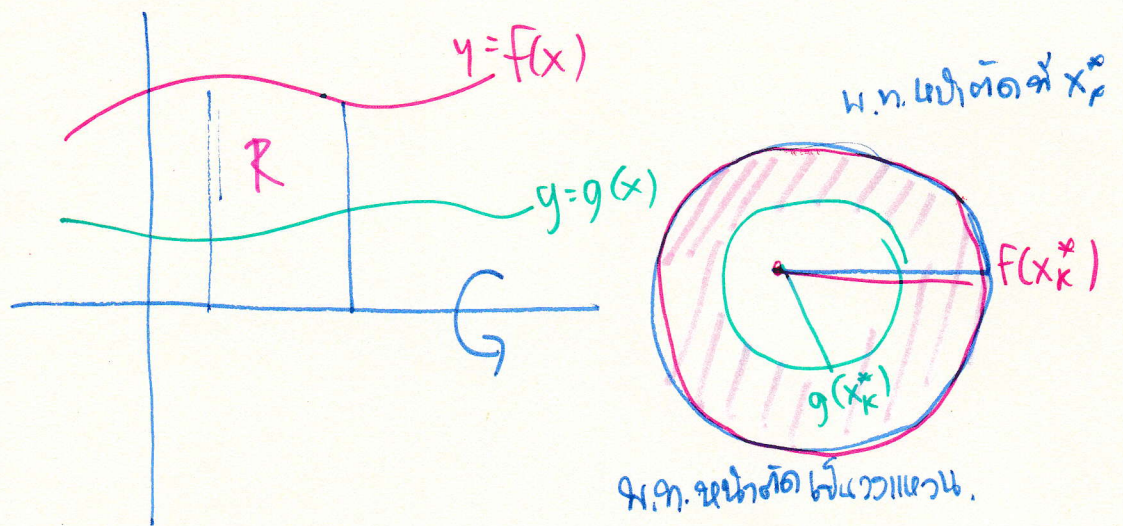 y=f(x)
R
y=g(x)
พ.ท. หน้าตัดที่ x*ₖ
f(x*ₖ)
g(x*ₖ)
พ.ท. หน้าตัดเป็นวงแหวน.